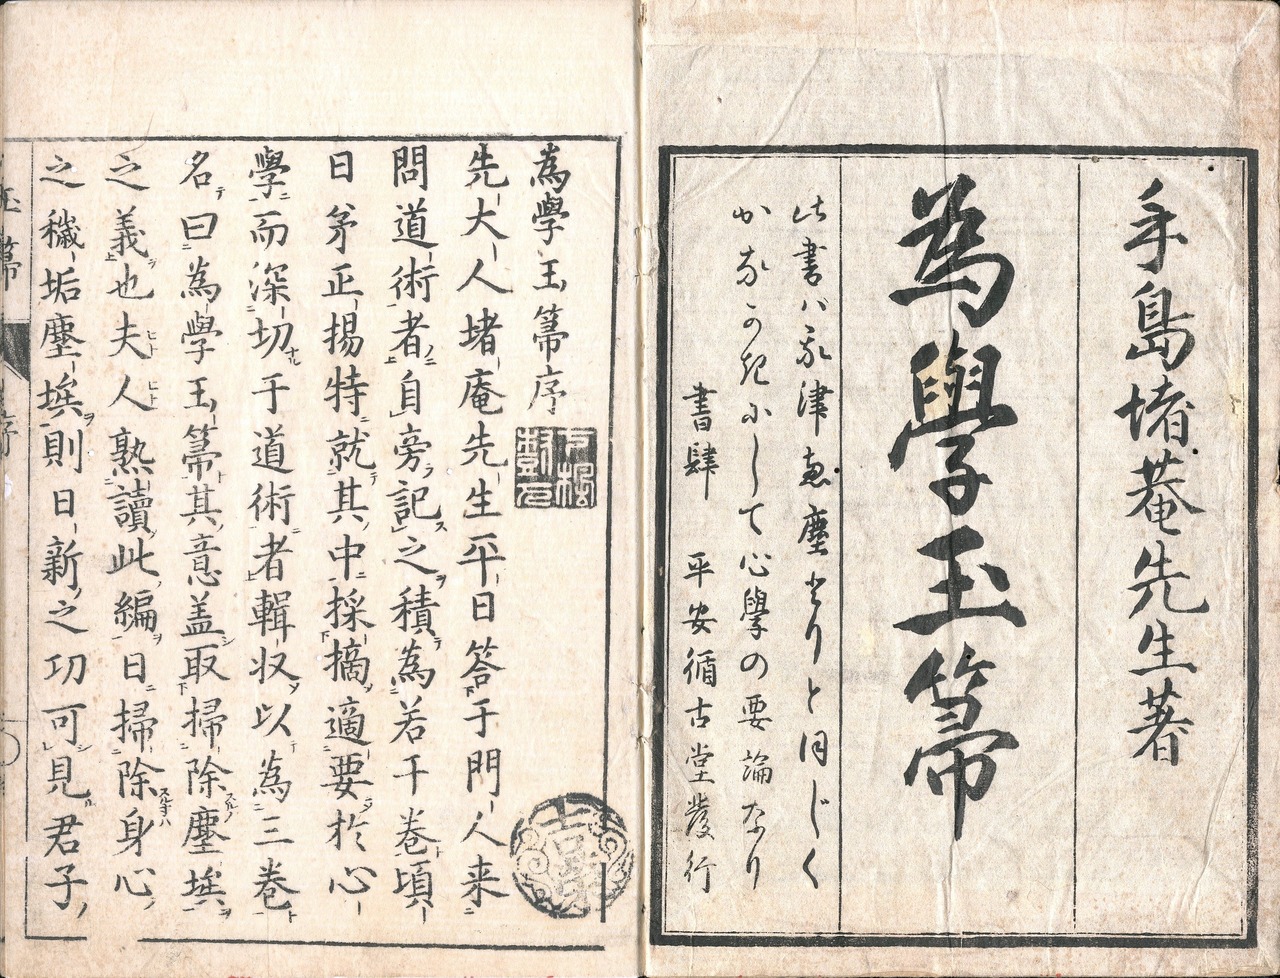 手島堵菴先生著
爲學玉箒
此書ハ我津衞塵とりと同じく
かなかきにして心學の要論なり
書肆　平安循古堂發行
爲學玉箒序
先大人堵庵先生平日答于門人来
問道術者自旁記之積為若干卷頃
日茅正揚特就其中採摘適要於心
學而深切于道術者輯収以為三卷
名曰為學玉箒其意盖取掃除塵埃
之義也夫人熟讀此編日掃除身心
之穢垢塵埃則日新之功可見君子